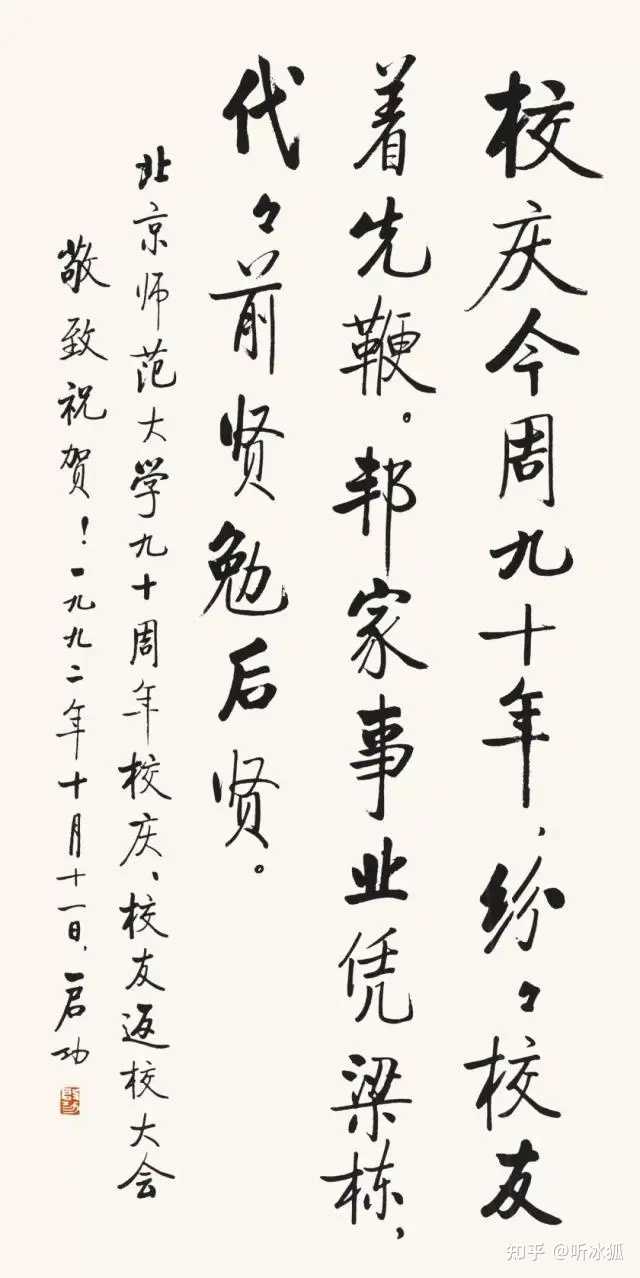 校庆今周九十年，纷々校友
着先鞭。邦家事业凭梁栋，
代々前贤勉后贤。
北京师范大学九十周年校庆、校友返校大会
敬致祝贺！一九九二年十月十一日，启功
启功
知乎 @听冰狐